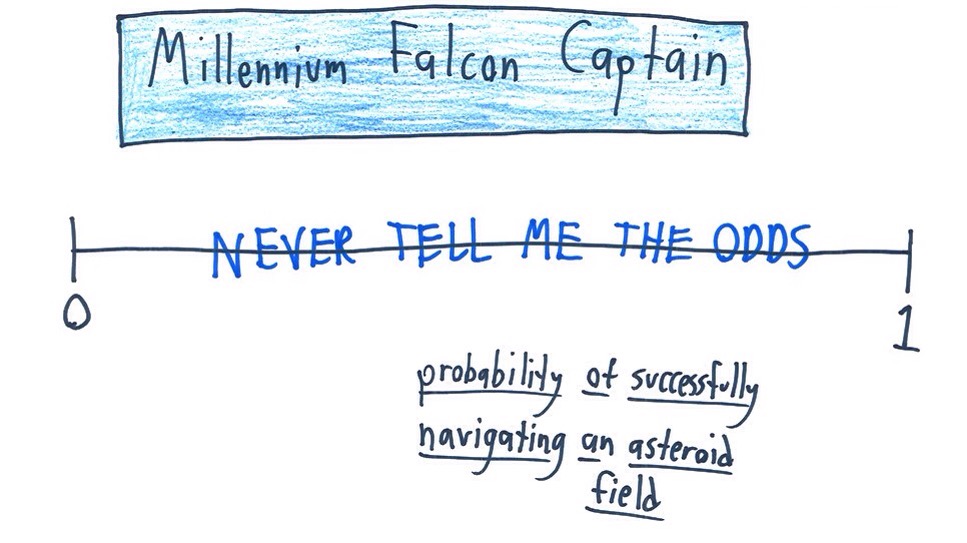 Millennium Falcon Captain
NEVER TELL ME THE ODDS
0
1
probability of successfully
navigating an asteroid
field